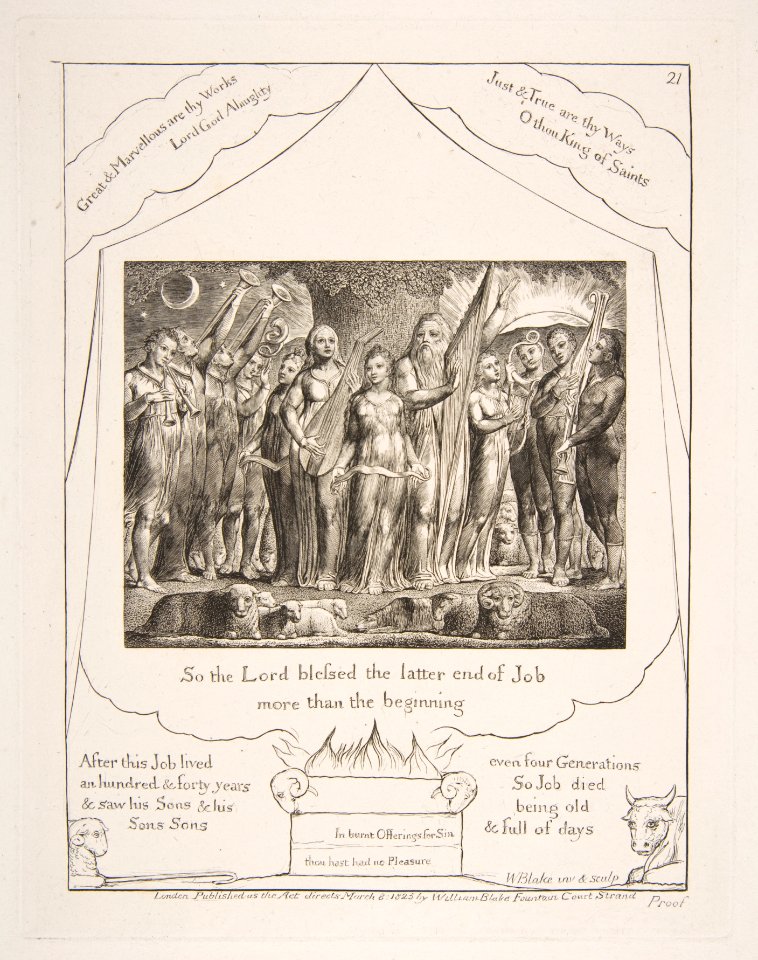 21
Great & Marvellous are thy Works
Lord God Almighty
Just & True are thy Ways
O thou King of Saints
So the Lord blefsed the latter end of Job
more than the beginning
After this Job lived
an hundred & forty years
& saw his Sons & his
Sons Sons
even four Generations
So Job died
being old
& full of days
In burnt Offerings for Sin
thou hast had no Pleasure
WBlake inv & sculp
London. Published as the Act directs March 8: 1825 by William Blake Fountain Court Strand
Proof